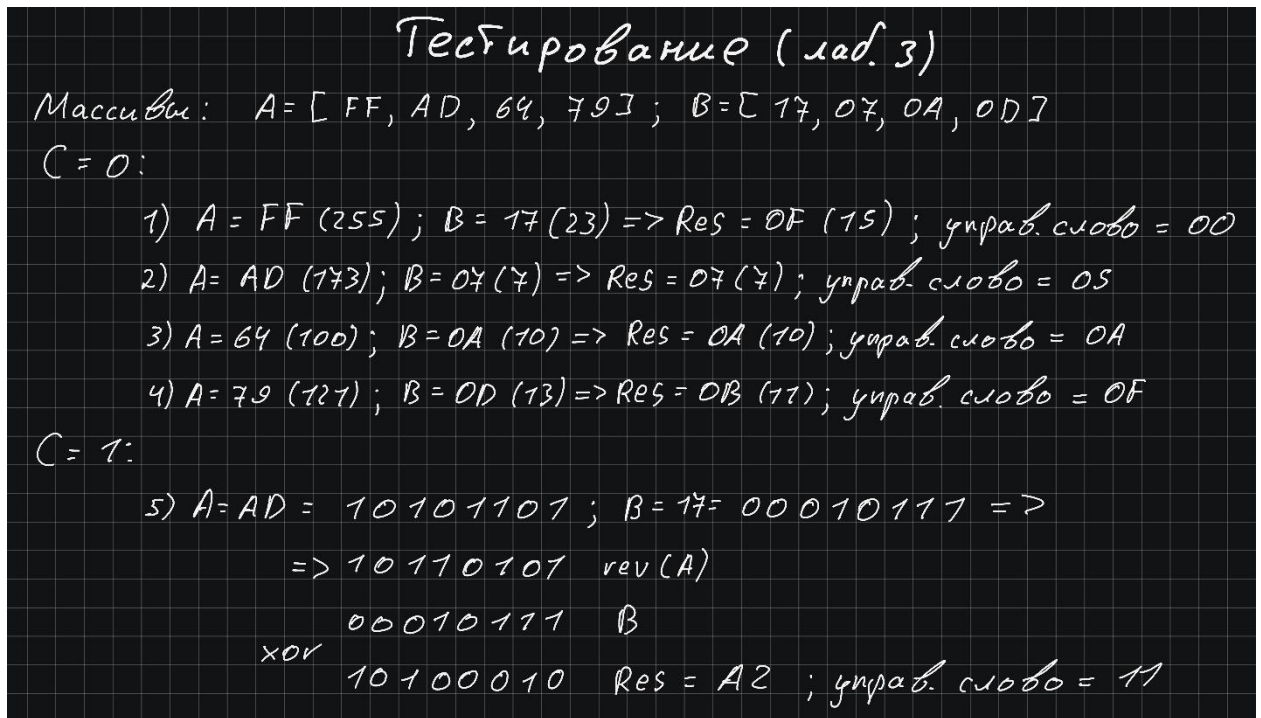 Тестирование (лаб. 3)
Массивы: A = [ FF, AD, 64, 79 ] ; B = [ 17, 07, 0A, 0D ]
C = 0:
1) A = FF (255) ; B = 17 (23) => Res = 0F (15) ; управ. слово = 00
2) A = AD (173) ; B = 07 (7) => Res = 07 (7) ; управ. слово = 05
3) A = 64 (100) ; B = 0A (10) => Res = 0A (10) ; управ. слово = 0A
4) A = 79 (121) ; B = 0D (13) => Res = 0B (11) ; управ. слово = 0F
C = 1:
5) A = AD = 10101101 ; B = 17 = 00010111 =>
=> 10110101 rev(A)
00010111 B
xor
10100010 Res = A2 ; управ. слово = 11